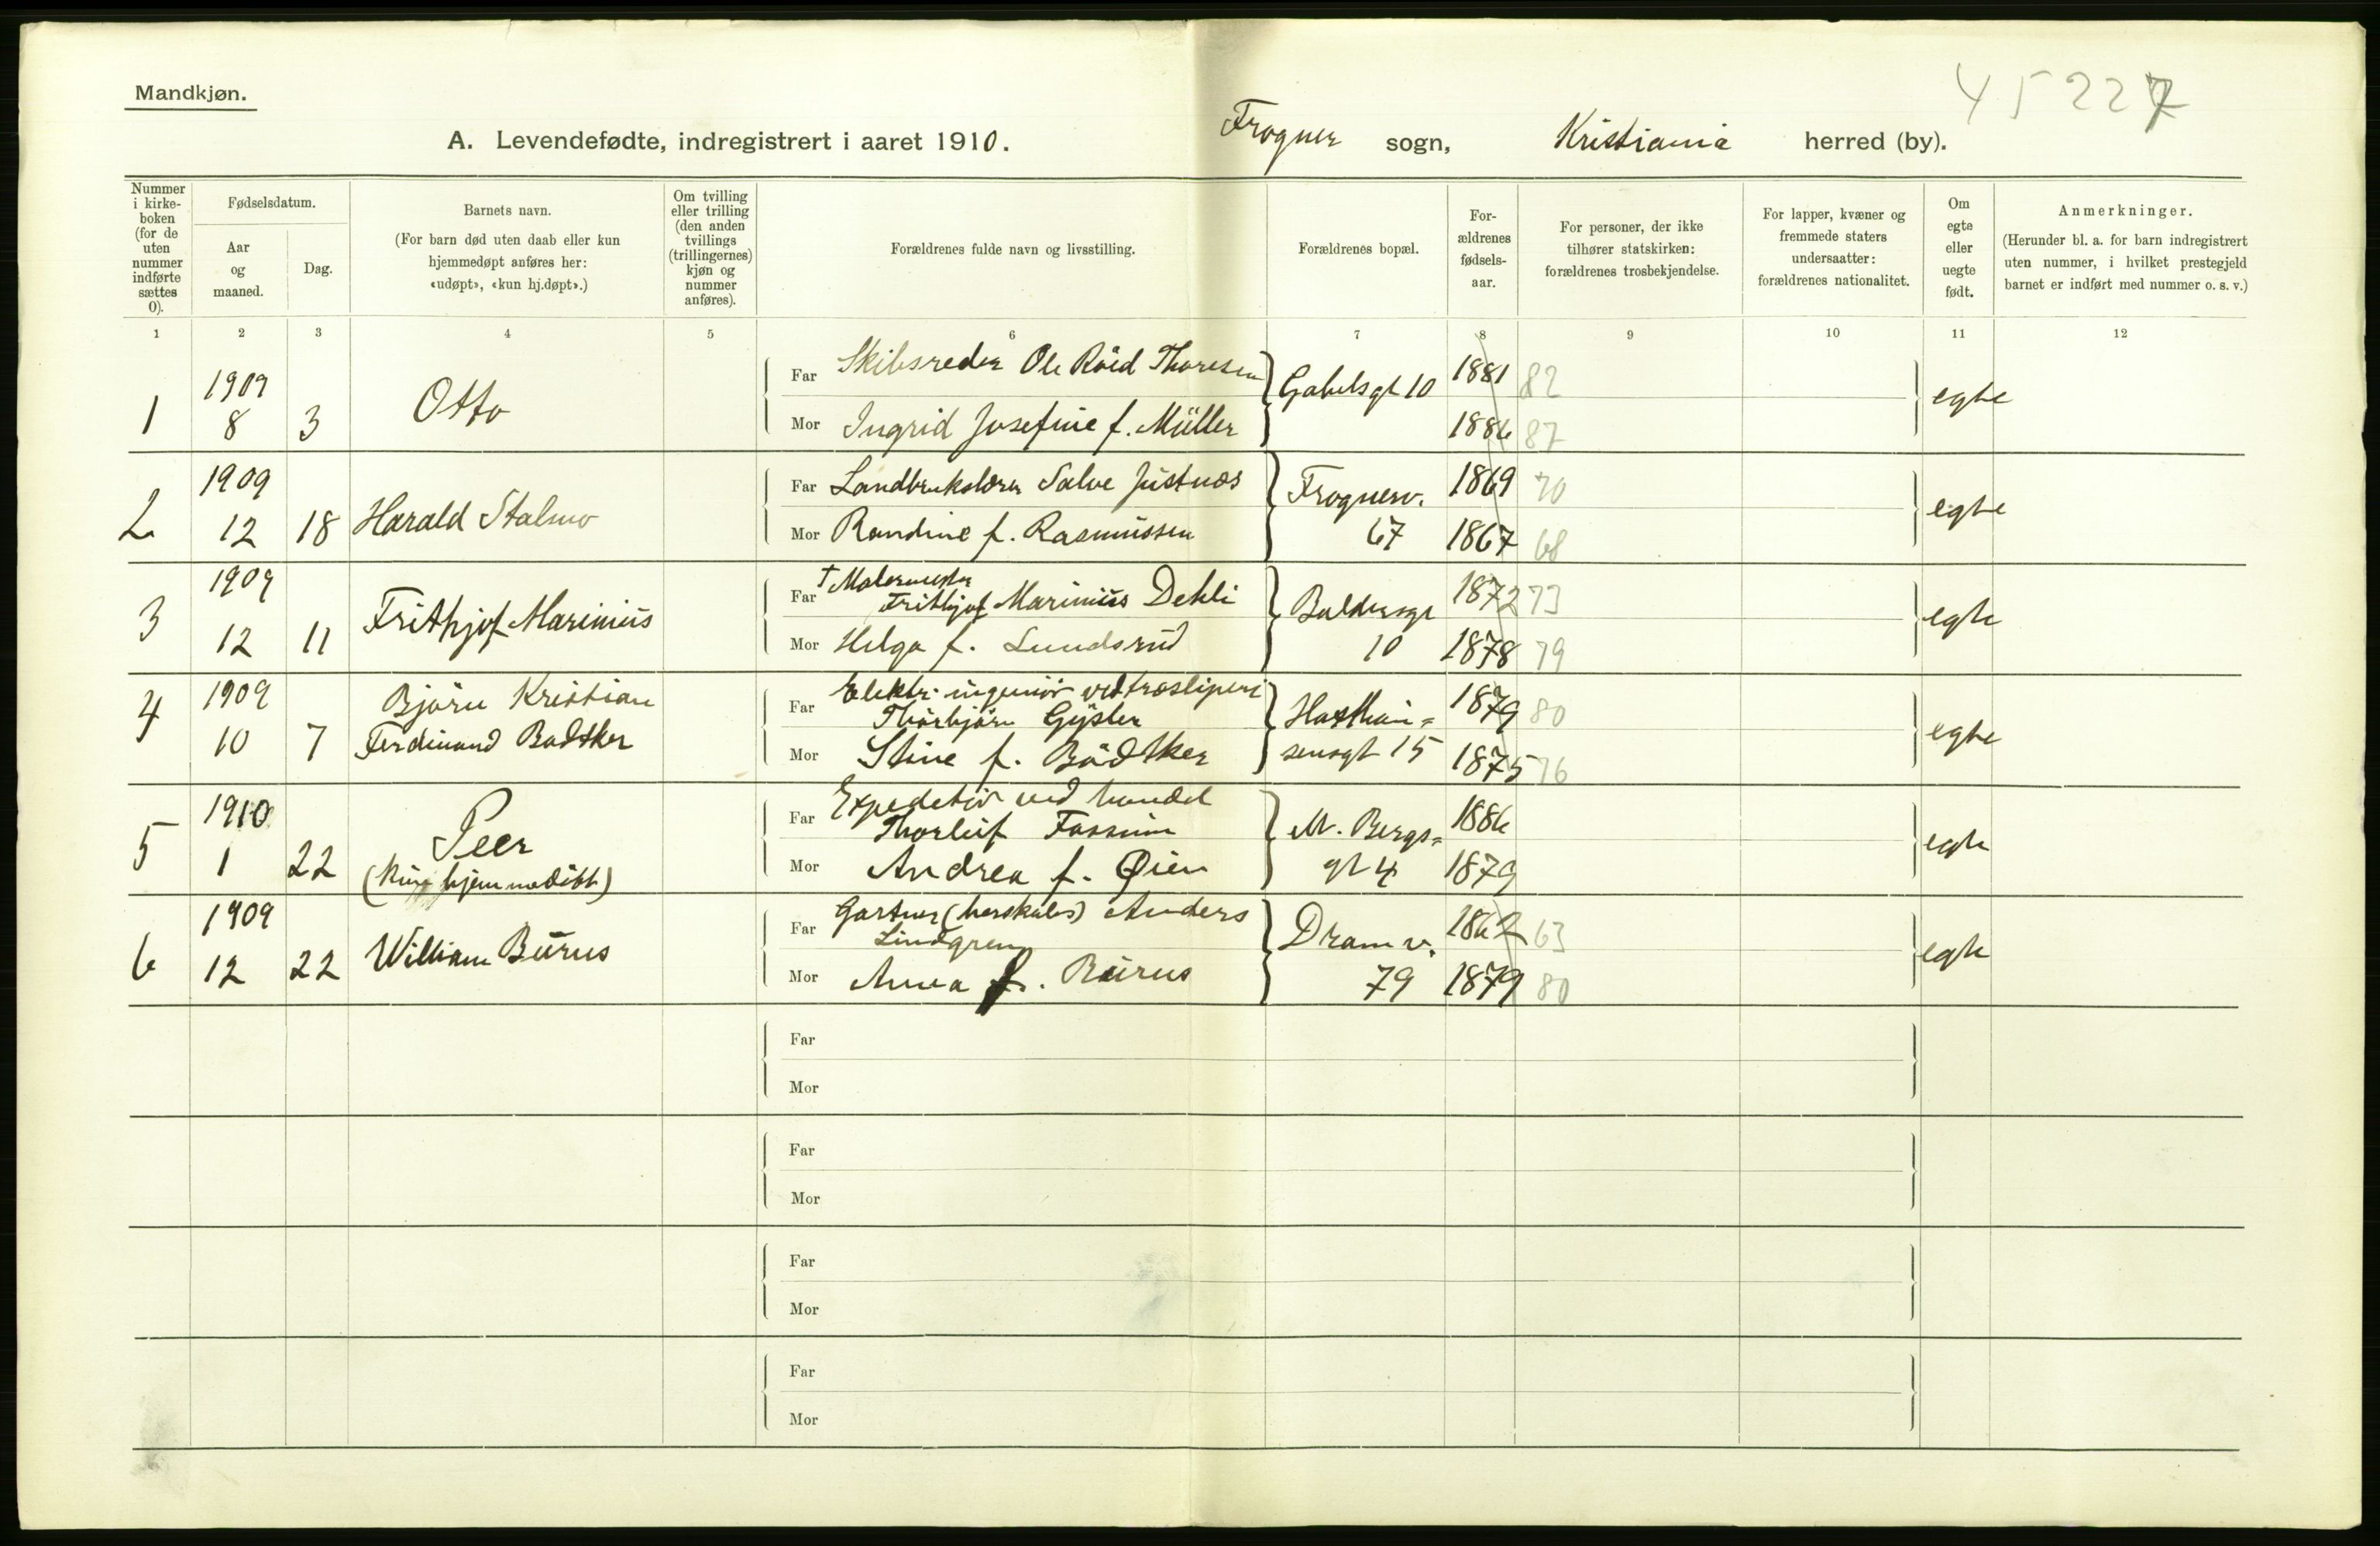 45227
Mandkjøn.
A. Levendefødte, indregistrert i aaret 1910. Frogner sogn, Kristiania herred (by).
Nummer i kirke-boken (for de uten nummer indførte sættes 0).
Fødselsdatum.
Aar og maaned.
Dag.
Barnets navn.
(For barn død uten daab eller kun hjemmedøpt anføres her: «udøpt», «kun hj.døpt».)
Om tvilling eller trilling (den anden tvillings (trillingernes) kjøn og nummer anføres).
Forældrenes fulde navn og livsstilling.
Forældrenes bopæl.
For-ældrenes fødsels-aar.
For personer, der ikke tilhører statskirken: forældrenes trosbekjendelse.
For lapper, kvæner og fremmede staters undersaatter: forældrenes nationalitet.
Om egte eller uegte født.
Anmerkninger.
(Herunder bl. a. for barn indregistrert uten nummer, i hvilket prestegjeld barnet er indført med nummer o. s. v.)
1 2 3 4 5 6 7 8 9 10 11 12
1 1909 8 3 Otto
Far Skibsreder Ole Röid Thoresen Gabelsgt 10 1881 82 egte
Mor Ingrid Josefine f. Müller 1886 87
2 1909 12 18 Harald Stalmo
Far Landbrukslærer Salve Justnæs Frognerv. 1869 70 egte
Mor Randine f. Rasmussen 67 1867 68
3 1909 12 11 Frithjof Marinius
Far † Malermester
Frithjof Marinius Dehli Baldersgt 1872 73 egte
Mor Helga f. Lundsrud 10 1878 79
4 1909 10 7 Björn Kristian
Ferdinand Bödtker
Far Elektr. ingeniör ved træsliperi
Thorbjörn Gÿsler Haxthau= 1879 80 egte
Mor Stine f. Bödtker sensgt 15 1875 76
5 1910 1 22 Peer
(kun hjemmedöbt)
Far Expeditör ved handel
Thorleif Fossum M. Bergs= 1886 egte
Mor Andrea f. Øien gt 4 1879
6 1909 12 22 William Burus
Far Gartner (herskabs) Anders
Lindgren Dramv. 1862 63 egte
Mor Anna f. Burus 79 1879 80
Far
Mor
Far
Mor
Far
Mor
Far
Mor